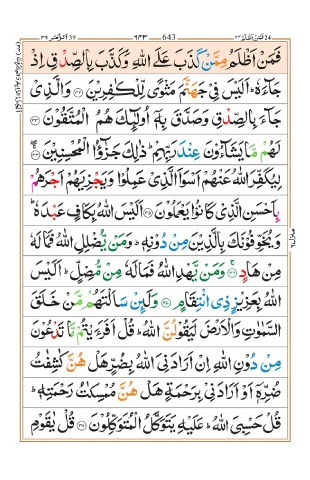 فَمَنۡ اَظۡلَمُ مِمَّنۡ كَذَبَ عَلَى اللّٰهِ وَكَذَّبَ بِالصِّدۡقِ اِذۡ
جَآءَهٗ ؕ اَلَيۡسَ فِىۡ جَهَنَّمَ مَثۡوًى لِّلۡكٰفِرِيۡنَ ﴿۳۲﴾ وَالَّذِىۡ
جَآءَ بِالصِّدۡقِ وَصَدَّقَ بِهٖۤ اُولٰٓٮِٕكَ هُمُ الۡمُتَّقُوۡنَ ﴿۳۳﴾
لَهُمۡ مَّا يَشَآءُوۡنَ عِنۡدَ رَبِّهِمۡ ؕ ذٰلِكَ جَزٰٓؤُا الۡمُحۡسِنِيۡنَ ﴿۳۴﴾
لِيُكَفِّرَ اللّٰهُ عَنۡهُمۡ اَسۡوَاَ الَّذِىۡ عَمِلُوۡا وَيَجۡزِيَهُمۡ اَجۡرَهُمۡ
بِاَحۡسَنِ الَّذِىۡ كَانُوۡا يَعۡمَلُوۡنَ ﴿۳۵﴾ اَلَيۡسَ اللّٰهُ بِكَافٍ عَبۡدَهٗ ؕ
وَيُخَوِّفُوۡنَكَ بِالَّذِيۡنَ مِنۡ دُوۡنِهٖ ؕ وَمَنۡ يُّضۡلِلِ اللّٰهُ فَمَا لَهٗ
مِنۡ هَادٍ ﴿۳۶﴾ وَمَنۡ يَّهۡدِ اللّٰهُ فَمَا لَهٗ مِنۡ مُّضِلٍّ ؕ اَلَيۡسَ
اللّٰهُ بِعَزِيۡزٍ ذِى انۡتِقَامٍ ﴿۳۷﴾ وَلَٮِٕنۡ سَاَلۡتَهُمۡ مَّنۡ خَلَقَ
السَّمٰوٰتِ وَالۡاَرۡضَ لَيَقُوۡلُنَّ اللّٰهُ ؕ قُلۡ اَفَرَءَيۡتُمۡ مَّا تَدۡعُوۡنَ
مِنۡ دُوۡنِ اللّٰهِ اِنۡ اَرَادَنِىَ اللّٰهُ بِضُرٍّ هَلۡ هُنَّ كٰشِفٰتُ
ضُرِّهٖۤ اَوۡ اَرَادَنِىۡ بِرَحۡمَةٍ هَلۡ هُنَّ مُمۡسِكٰتُ رَحۡمَتِهٖ ؕ
قُلۡ حَسۡبِىَ اللّٰهُ ؕ عَلَيۡهِ يَتَوَكَّلُ الۡمُتَوَكِّلُوۡنَ ﴿۳۸﴾ قُلۡ يٰقَوۡمِ
643
۶۴۳